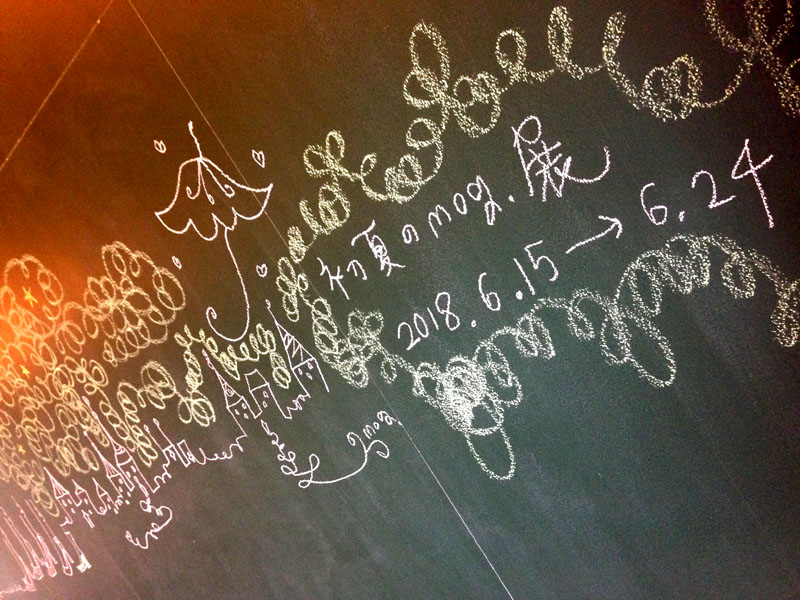 初夏のmog.展
2018.6.15→6.24
mog.